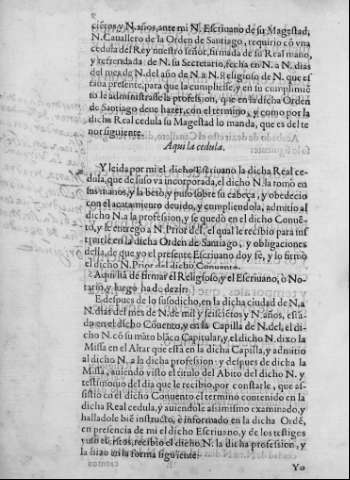 ciẽtos, y N. años, ante mi N. Escriuano de su Magestad,
N. Cauallero de la Orden de Santiago, requirio cõ vna
cedula del Rey nuestro señor, firmada de su Real mano,
y refrendada de N. su Secretario, fecha en N. a N. dias
del mes de N. del año de N. a N. Religioso de N. que es
taua presente, para que la cumpliesse, y en su cumplimiẽ
to le administrasse la profession, que en la dicha Orden
de Santiago deue hazer, con el termino, y como por la
dicha Real cedula su Magestad lo manda, que es del te
nor siguiente.
Aqui la cedula.
Y leida por mi el dicho Escriuano la dicha Real ce-
dula, que de suso va incorporada, el dicho N. la tomò en
sus manos, y la besò, y puso sobre su cabeça, y obedecio
con el acatamiento deuido, y cumpliendola, admitio al
dicho N. a la profession, y se quedò en el dicho Conuẽ-
to, y se entrego a N. Prior del, el qual le recibio para ins
truirle en la dicha Orden de Santiago, y obligaciones
della, de que yo el presente Escriuano doy fè, y lo firmò
el dicho N. Prior del dicho Conuento.
Aqui ha de firmar el Religioso, y el Escriuano, ò No-
tario, y luego ha de dezir:
E despues de lo susodicho, en la dicha ciudad de N. a
N. dias del mes de N. de mil y seisciẽtos y N. años, estã-
do en el dicho Cõuento, y en la Capilla de N. del, el di-
cho N. cõ su mãto blãco Capitular, y el dicho N. dixo la
Missa en el Altar que està en la dicha Capilla, y admitio
al dicho N. a la dicha profession: y despues de dicha la
Missa, auiendo visto el titulo del Abito del dicho N. y
testimonio del dia que le recibio, por constarle, que as-
sistio en el dicho Conuento el termino contenido en la
dicha Real cedula, y auiendole assimismo examinado, y
halladole biẽ instructo, e informado en la dicha Ordẽ,
en presencia de mi el dicho Escriuano, y de los testigos
yuso escritos, recibio el dicho N. la dicha profession, y
la hizo en la forma siguiente:
Yo